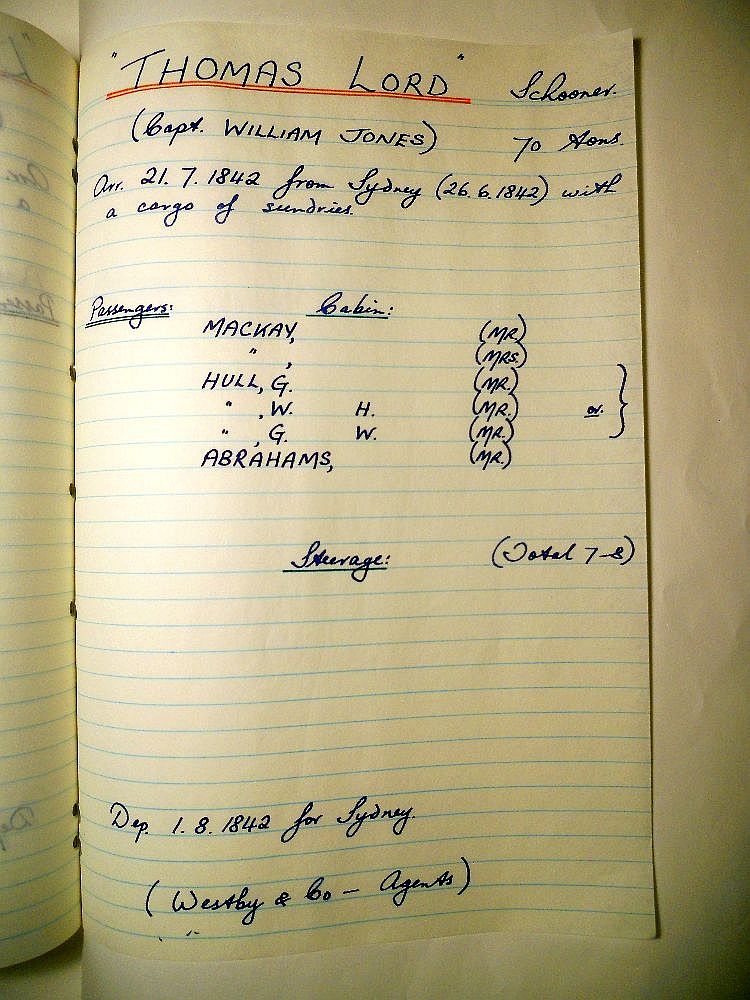 "THOMAS LORD" Schooner.
(Capt. WILLIAM JONES) 70 tons.
Arr. 21.7.1842 from Sydney (26.6.1842) with
a cargo of sundries.
Passengers: Cabin:
MACKAY, (MR.)
" , (MRS.)
HULL, G. (MR.)
" , W. H. (MR.) or.
" , G. W. (MR.)
ABRAHAMS, (MR.)
Steerage: (Total 7-8)
Dep. 1.8.1842 for Sydney.
(Westby & Co — Agents)